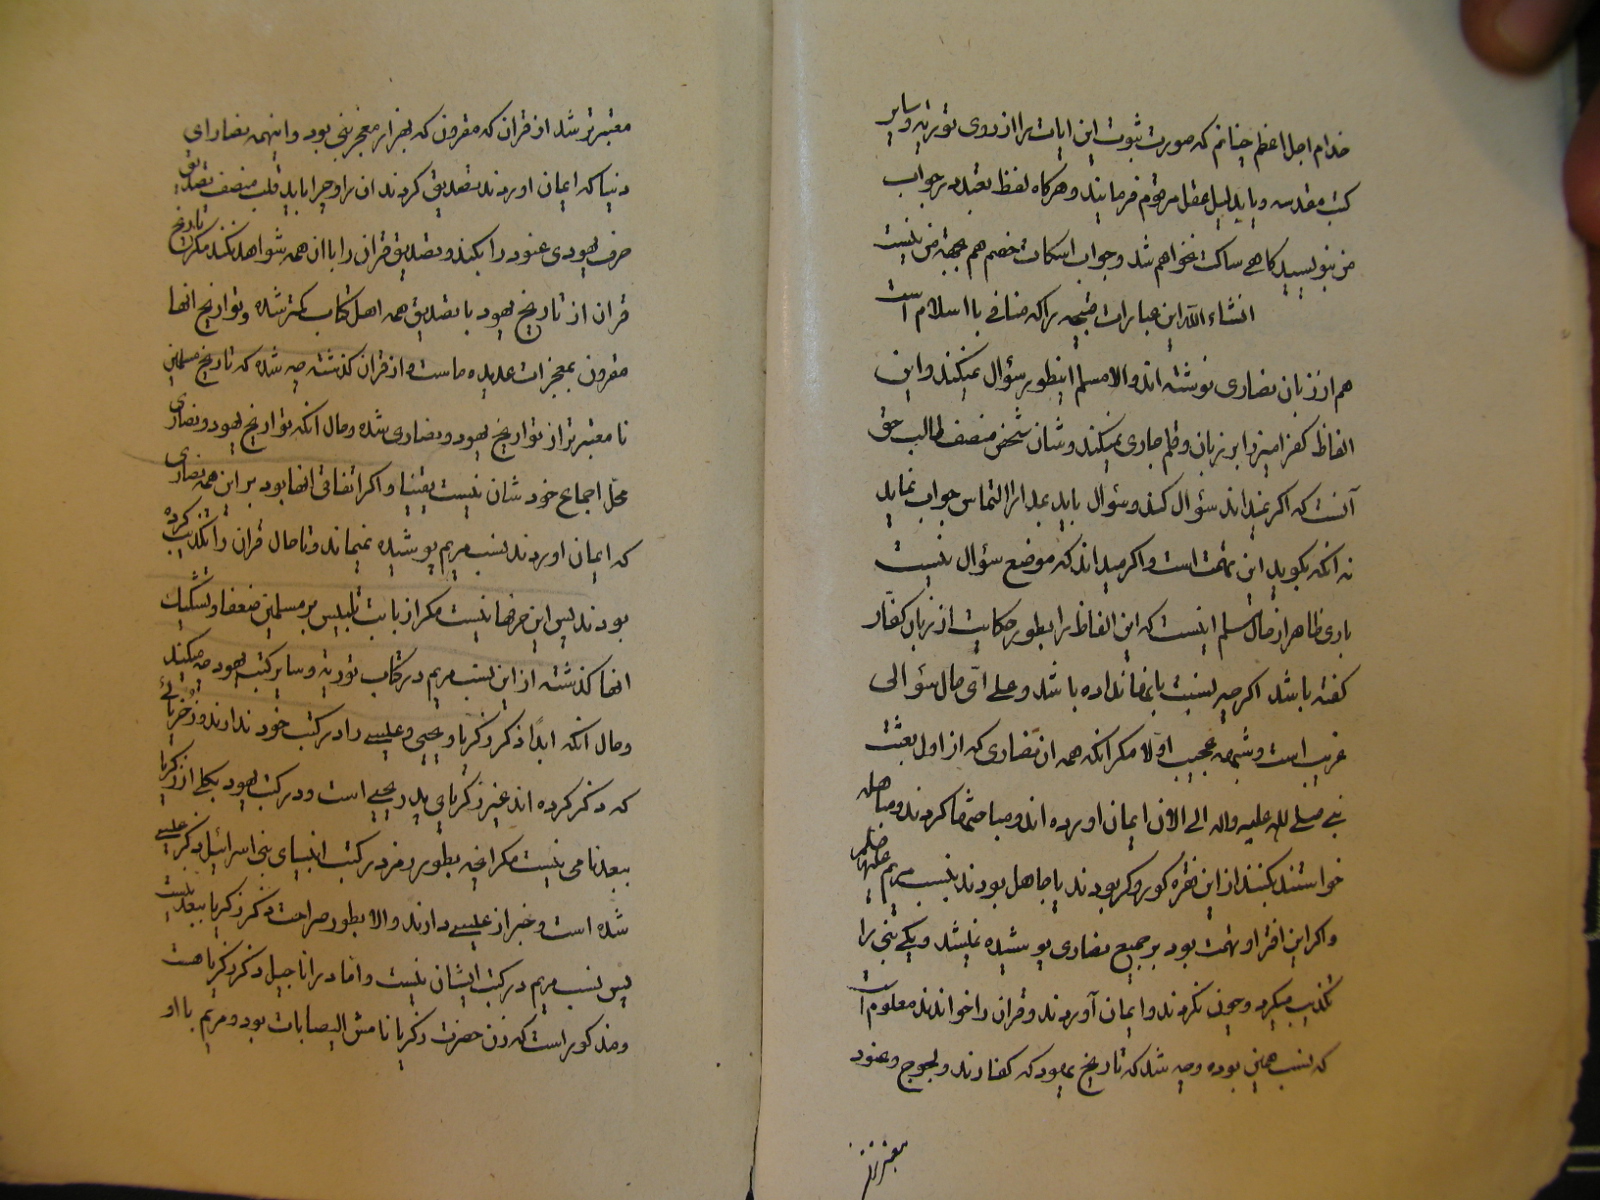 خدام اجل اعظم چنانم که صورت ثبوت این ایات را از روی توریة و سایر
کتب مقدسه و یا بدلیل عقل مرقوم فرمایند و هرکاه لفظ تعبد در جواب
من بنویسید کاهی ساکت نخواهم شد و جواب اسکات خصم هم حجة من نیست
انشاء الله این عبارات قبیحه را که منافی با اسلام است
هم از زبان نصاری نوشته اند والا مسلم اینطور سؤال نمیکند و این
الفاظ کفرامیز را بر زبان و قلم جاری نمیکند و شان شخص منصف طالب حق
آنست که اکر نمیداند سؤال کند و سؤال باید بعد از التماس جواب نماید
نه انکه بکوید این تهمت است و اکر میداند که موضع سؤال نیست
باری ظاهر از حال مسلم اینست که این الفاظ را بطور حکایت از زبان کفار
کفته باشد اکرچه نسبت بانها نداده باشد و علی ای حال سؤالی
غریب است و شبهه عجیب اولا مکر انکه همه ان نصاری که از اول بعثت
نبی صلی الله علیه واله الی الان ایمان اورده اند و مباحثها کردند و مباهله
خواستند بکنند از این فقره کور و کر بودند یا جاهل بودند بنسب مریم علیها سلم
و اکر این افترا و تهمت بود بر جمیع نصاری پوشیده نمیشد و یکی نبی را
تکذیب میکرد و چون نکردند و ایمان آوردند و قران را خواندند معلوم است
که نسب همین بوده و چه شد که تاریخ یهود که کفارند و لجوج و عنود
معتبرتر
معتبرتر شد از قران که مقرون که بهزار معجز نبی بود و اینهمه نصارای
دنیا که ایمان اوردند تصدیق کردند ان را و چرا باید قلب منصف تصدیق
حرف یهودی عنود را بکند و تصدیق قران را با ان همه شواهد نکند مکر تاریخ
قران از تاریخ یهود با تصدیق همه اهل کتاب کمتر شده و تواریخ انها
مقرون بمعجزات عدیده ماست و از قران کذشته چه شده که تاریخ مسلمین
نا معتبرتر از تواریخ یهود و نصاری شده و حال انکه تواریخ یهود و نصاری
محل اجماع خودشان نیست یقینا و اکر اتفاقی انها بود بر این همه نصاری
که ایمان اوردند نسب مریم پوشیده نمیماند و تا حال قران را تکذیب کرده
بودند پس این حرفها نیست مکر از بابت تلبیس بر مسلمین ضعفا و تشکیک
انها کذشته از این نسب مریم در کتاب توریة و سایر کتب یهود چه میکند
و حال انکه ابدا ذکر زکریا و یحیی و عیسی را در کتب خود ندارند و زخریائی
که ذکر کرده اند غیر زکریای پدر یحیی است و در کتب یهود یکلی از زکریا
ببعد نامی نیست مکر انچه بطور رمز در کتب انبیای بنی اسرائیل ذکر عیسی
شده است و خبر از عیسی دارند والا بطور صراحت ذکر زکریا ببعد نیست
پس نسب مریم در کتب ایشان نیست و اما در اناجیل ذکر زکریا هست
و مذکور است که زن حضرت زکریا نامش الیصابات بود و مریم با او